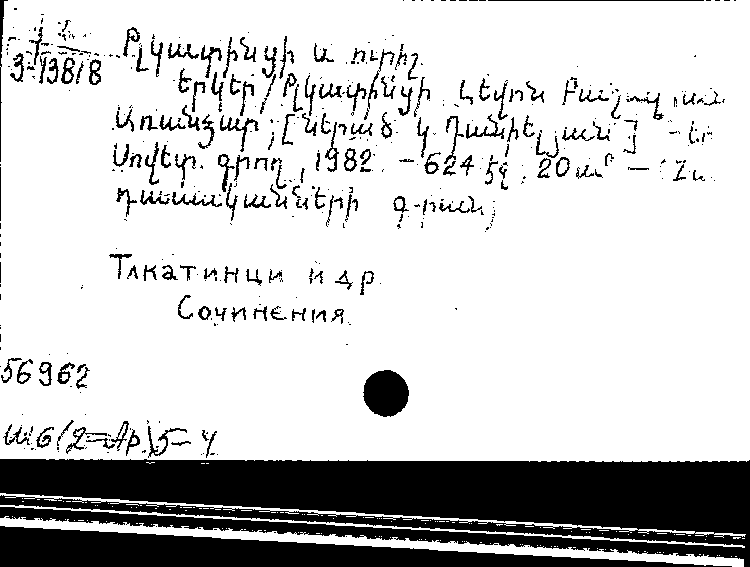 З-13818
Թլկատինցի և ուրիշ.
Երկեր / Թլկատինցի. Լևոն Բաշալյան
Առանձար; [Ներած. Կ. Դանիելյանի] - Եր
Սովետ. գրող, 1982. - 624 էջ, 20 սմ -
դասականների գրադ
Тлкатинци и др.
Сочинения.
56962
Ш6(2=Ар)5-4